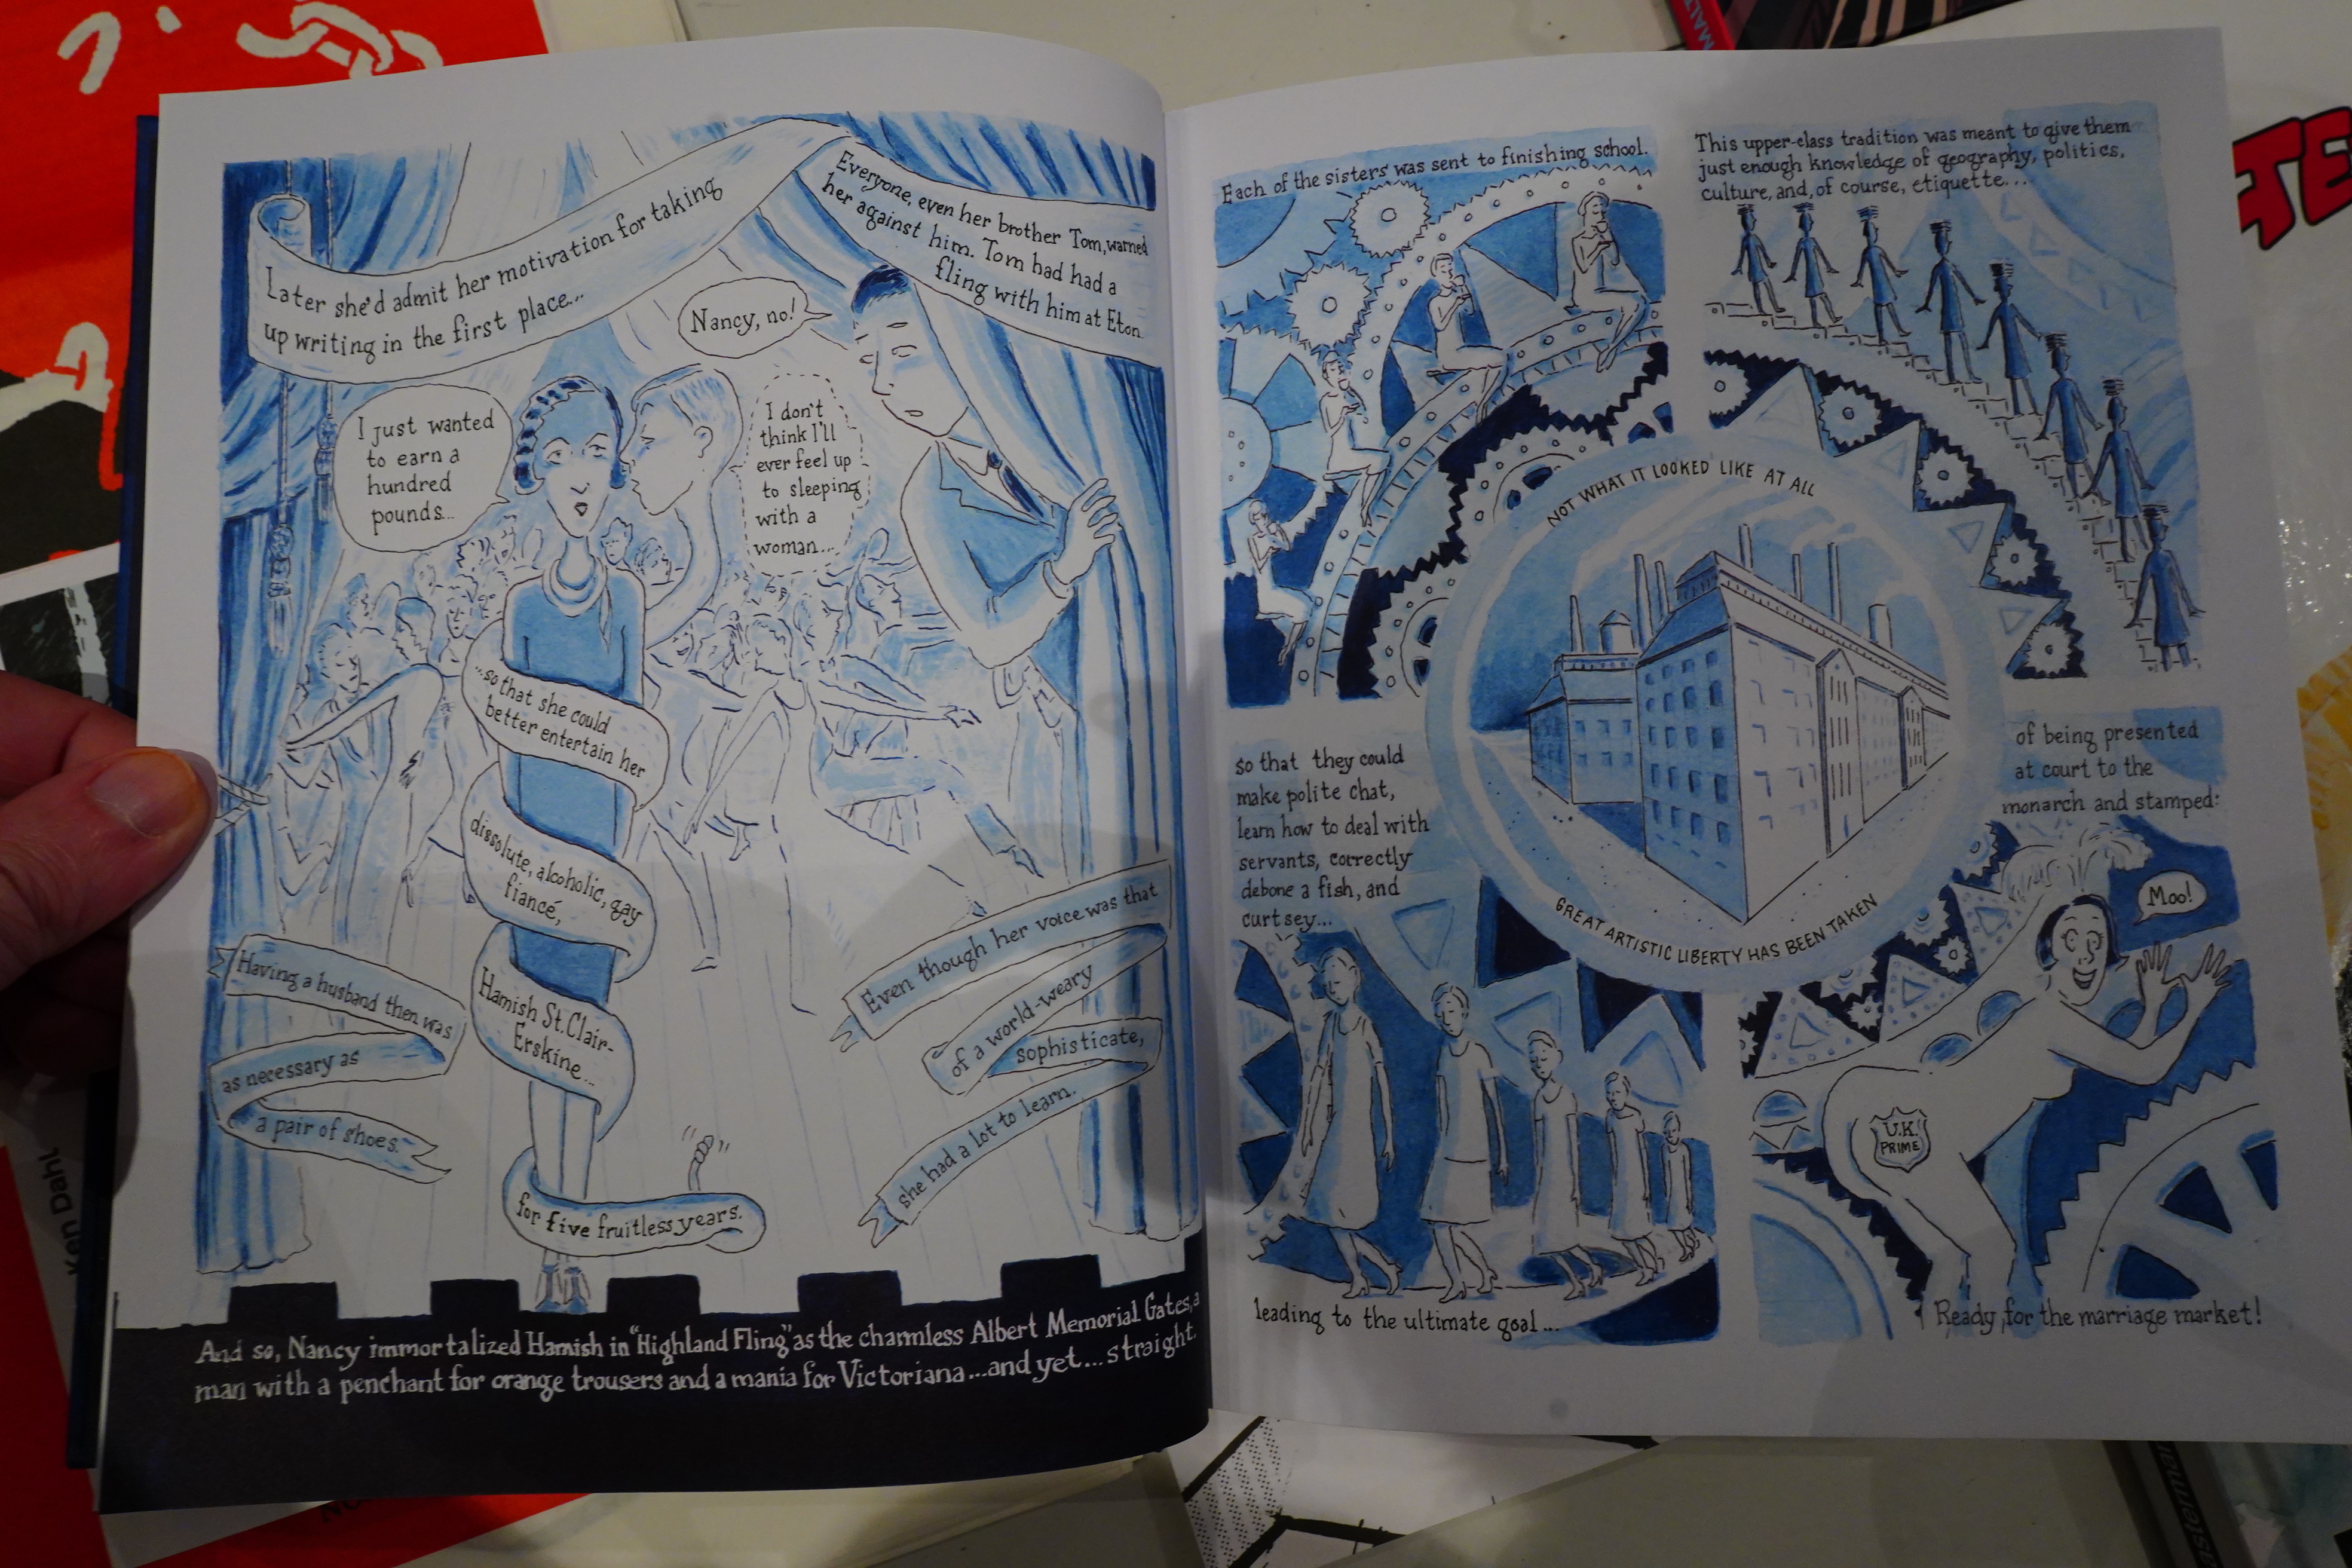 Later she'd admit her motivation for taking
up writing in the first place...
Everyone, even her brother Tom, warned
her against him. Tom had had a
fling with him at Eton.
Nancy, no!
I just wanted
to earn a
hundred
pounds...
I don't
think I'll
ever feel up
to sleeping
with a
woman...
...so that she could
better entertain her
dissolute, alcoholic, gay
fiancé,
Hamish St. Clair-
Erskine...
for five fruitless years.
Having a husband then was
as necessary as
a pair of shoes.
Even though her voice was that
of a world-weary
sophisticate,
she had a lot to learn.
And so, Nancy immortalized Hamish in "Highland Fling" as the charmless Albert Memorial Gates, a
man with a penchant for orange trousers and a mania for Victoriana...and yet...straight.
Each of the sisters was sent to finishing school.
This upper-class tradition was meant to give them
just enough knowledge of geography, politics,
culture, and, of course, etiquette...
NOT WHAT IT LOOKED LIKE AT ALL
GREAT ARTISTIC LIBERTY HAS BEEN TAKEN
so that they could
make polite chat,
learn how to deal with
servants, correctly
debone a fish, and
curtsey...
leading to the ultimate goal...
of being presented
at court to the
monarch and stamped:
Moo!
U.K.
PRIME
Ready for the marriage market!
Ken Dahl
MALT
TE